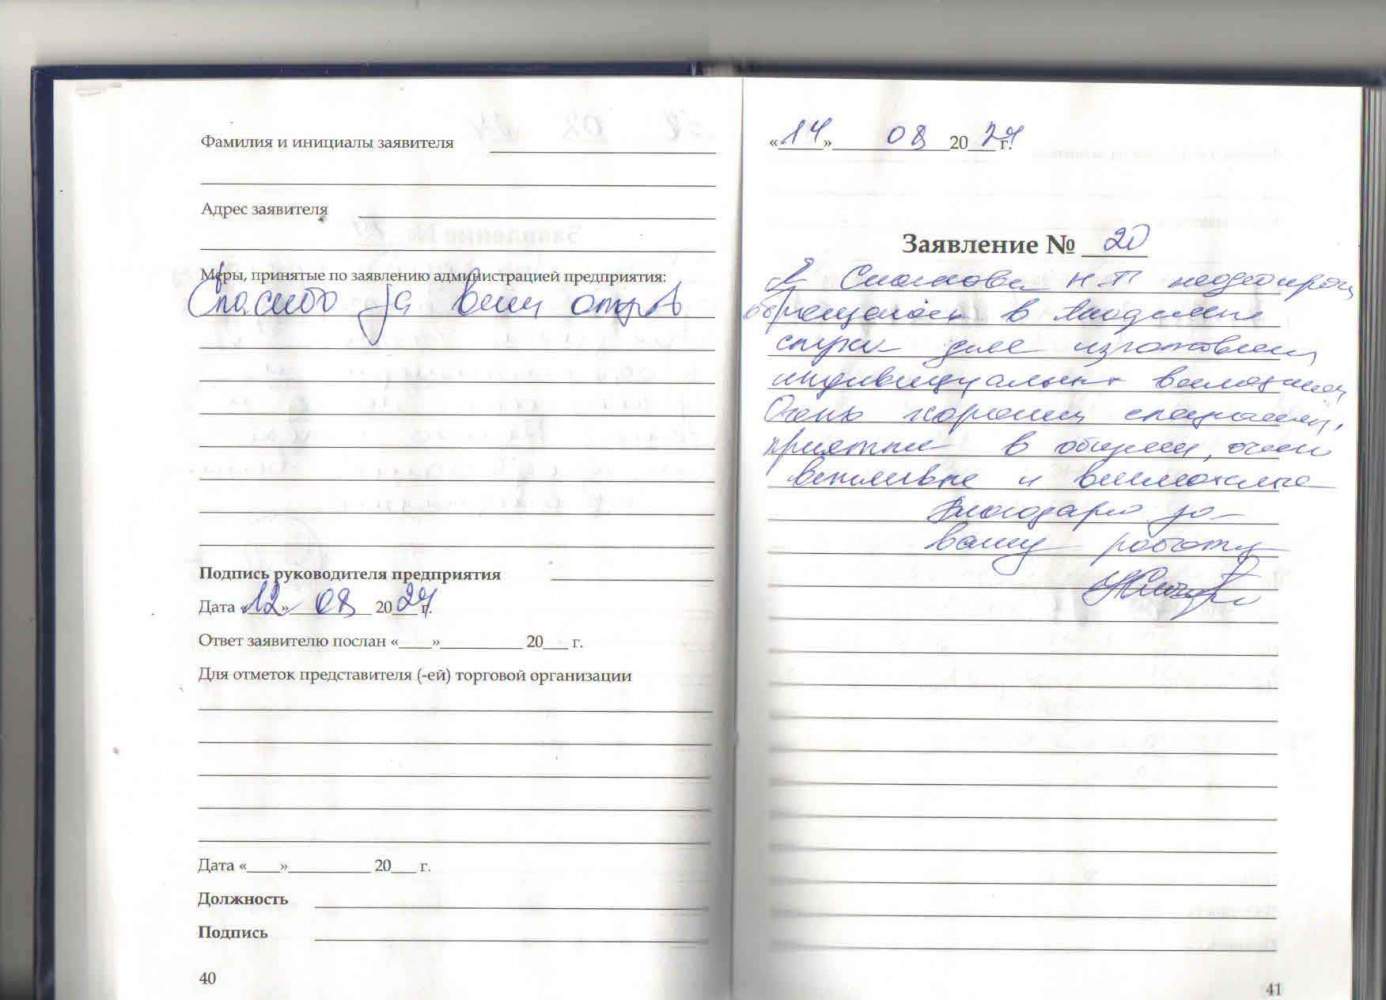 Фамилия и инициалы заявителя
Адрес заявителя
Меры, принятые по заявлению администрацией предприятия:
Спасибо за ваш отзыв
Подпись руководителя предприятия
Дата «12» 08 2024 г.
Ответ заявителю послан «___»__________ 20___ г.
Для отметок представителя (-ей) торговой организации
Дата «____»__________ 20___ г.
Должность
Подпись
40
«14» 08 2024 г.
Заявление № 20
Я Н.П неоднокр
обращалась в Академию
слуха для изготовлен
индивидуальных вкладышей
Очень хорошие специалисты,
приятные в общении, очень
вежливые и внимательные
Благодарю за
вашу работу
41